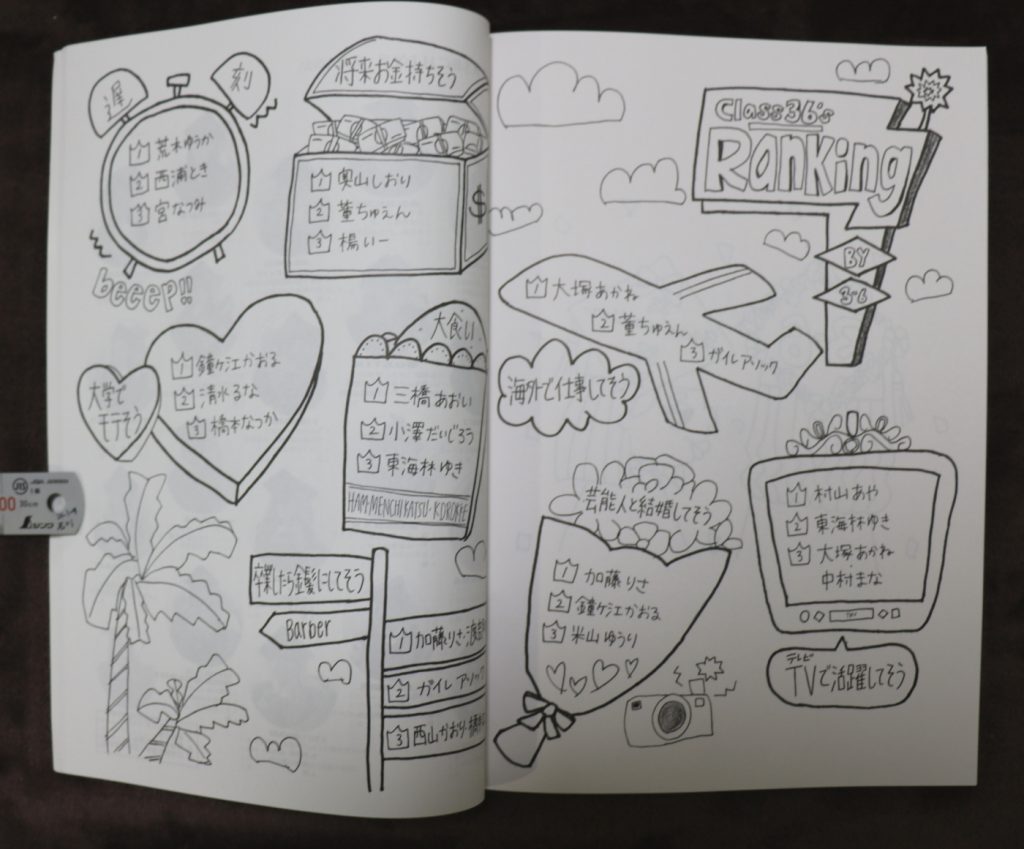 遅刻
1 荒木ゆうか
2 西浦とき
3 宮なつみ
beeep!!
将来お金持ちそう
1 奥山しおり
2 董ちゅえん
3 楊いー
$
大学で
モテそう
1 鐘ヶ江かおる
2 清水るな
3 橋本なつか
大食い
1 三橋あおい
2 小澤だいじろう
3 東海林ゆき
HAM・MENCHIKATSU・KOROKKE
卒業したら金髪にしてそう
Barber
1 加藤りさ・渡部
2 ガイル アリック
3 西山かおり・橋本
Class36's
Ranking
BY
3-6
1 大塚あかね
2 董ちゅえん
3 ガイル アリック
海外で仕事してそう
芸能人と結婚してそう
1 加藤りさ
2 鐘ヶ江かおる
3 米山ゆうり
1 村山あや
2 東海林ゆき
3 大塚あかね
中村まな
テレビ
TVで活躍してそう